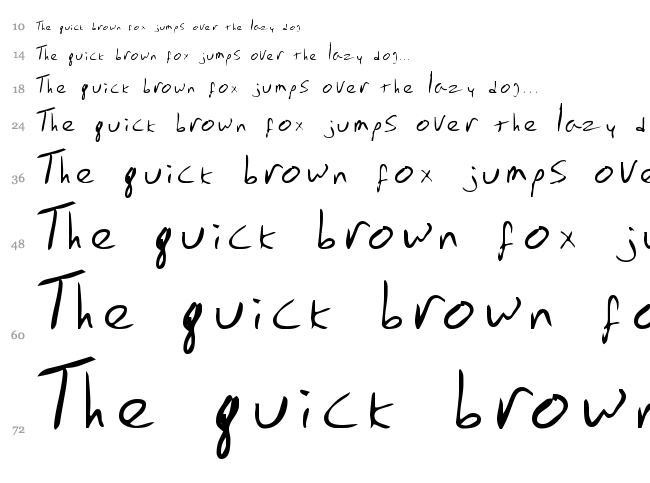 10 The quick brown fox jumps over the lazy dog
14 The quick brown fox jumps over the lazy dog...
18 The quick brown fox jumps over the lazy dog...
24 The quick brown fox jumps over the lazy d
36 The quick brown fox jumps ove
48 The quick brown fox ju
60 The quick brown fo
72 The quick brown